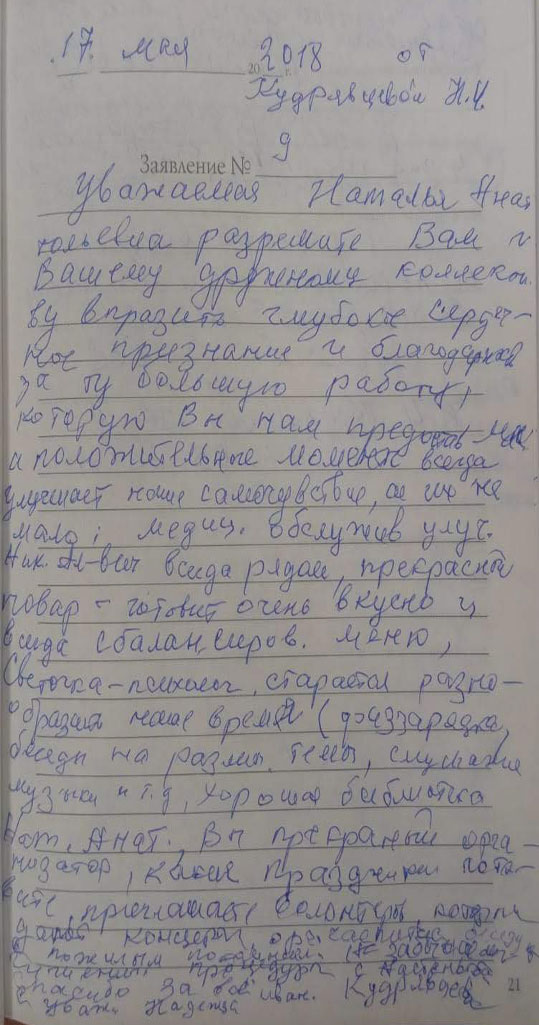 17. мая 2018 от
20 г.
Кудрявцевой Н.И.
Заявление № 9
Уважаемая Наталья Анат
ольевна разрешите Вам и
Вашему дружному коллекти
ву выразить глубокое сердеч-
ное признание и благодарность
за ту большую работу,
которую Вы нам
и положительные моменты всегда
улучшает наше самочувствие, а их не
мало; медиц. обслужив улуч.
Ник. Ал-вич всегда рядом, прекрасный
повар - готовит очень вкусно и
всегда сбалансиров. меню,
Светочка-психолог, старается разно-
образить наше время (физзарядка,
беседы на разлин. темы, слушание
музыки и т.д, хорошая библиотека
Нат. Анат. Вы прекраный орга-
низатор, какие праздники гото-
вите, приглашаете волонтеры, которы
дарят концерты
пожилым
процедуры с
спасибо за всё Кудрявцева
С Уваж. Надежда
21